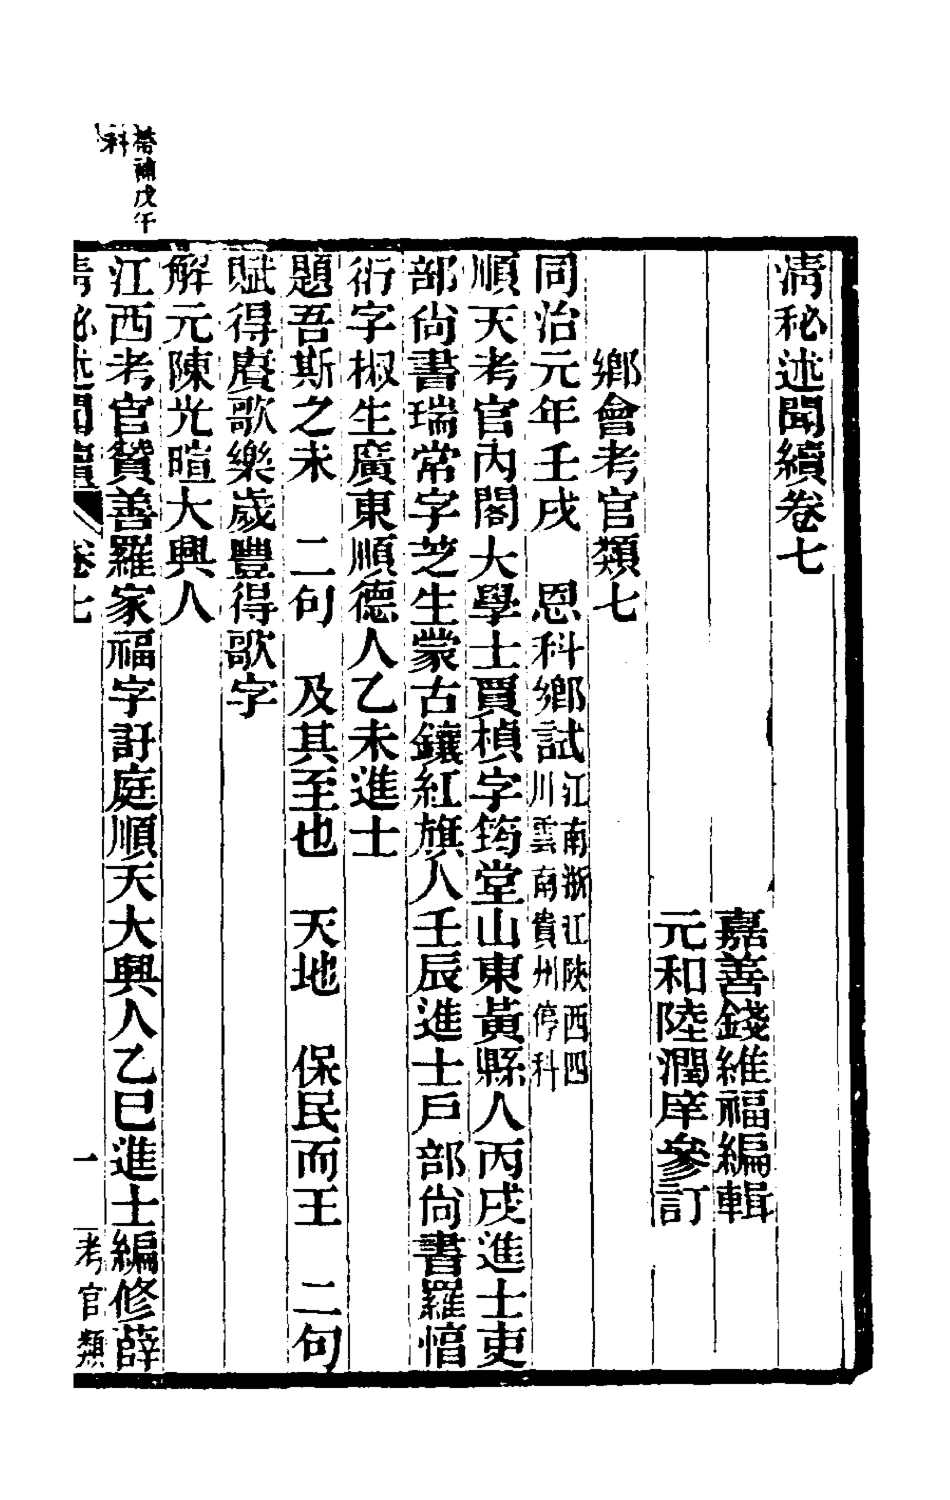 清秘述聞續卷七
嘉善錢維福編輯
元和陸潤庠參訂
鄉會考官類七
同治元年壬戌　恩科鄉試江南浙江陝西四川雲南貴州停科
順天考官內閣大學士賈楨字筠堂山東黃縣人丙戌進士吏
部尚書瑞常字芝生蒙古鑲紅旗人壬辰進士戶部尚書羅惇
衍字椒生廣東順德人乙未進士
題吾斯之未　二句　及其至也　天地　保民而王　二句
賦得賡歌樂歲豐得歌字
解元陳光暄大興人
帶補戊午
科
江西考官贊善羅家福字訏庭順天大興人乙巳進士編修薛
清秘述聞續　卷七　一　考官類